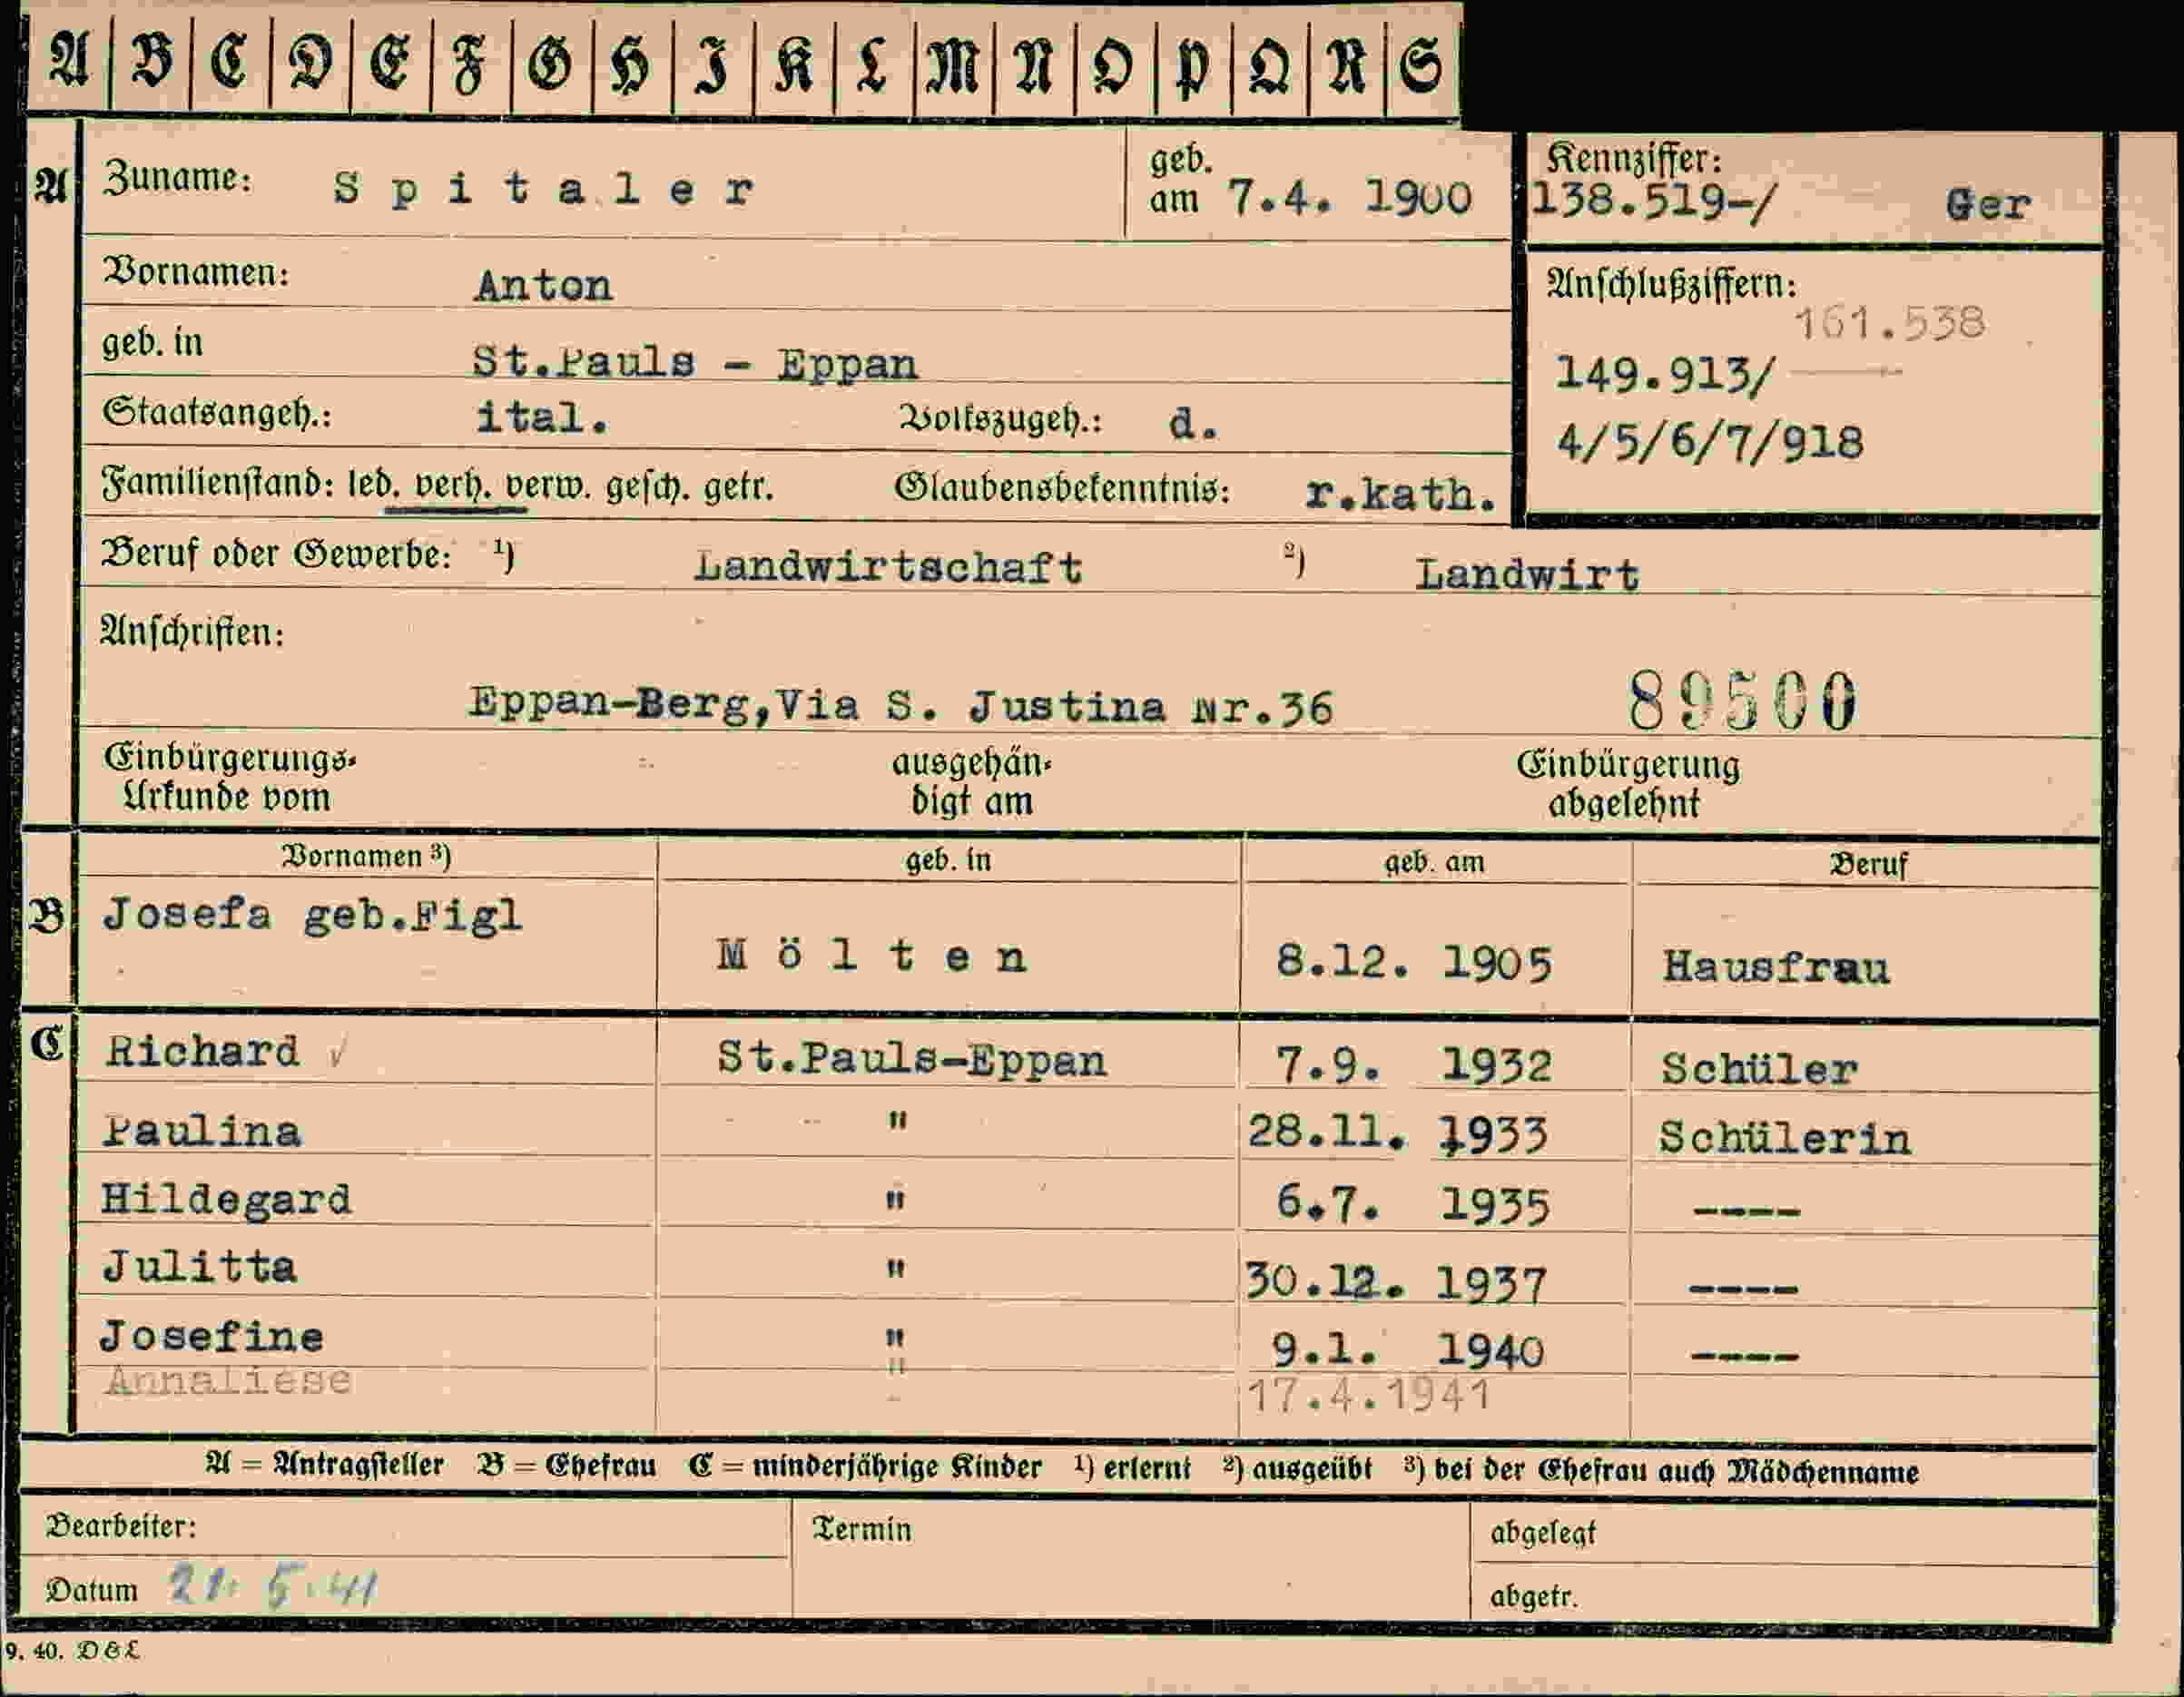 A B C D E F G H I K L M N O P Q R S
A Zuname: Spitaler geb. am 7.4. 1900 Kennziffer: 138.519-/ Ger
Vornamen: Anton Anschlußziffern: 161.538
geb. in St.Pauls - Eppan 149.913/
Staatsangeh.: ital. Volkszugeh.: d. 4/5/6/7/918
Familienstand: led. verh. verw. gesch. getr. Glaubensbekenntnis: r.kath.
Beruf oder Gewerbe: ¹) Landwirtschaft ²) Landwirt
Anschriften:
Eppan-Berg,Via S. Justina Nr.36 89500
Einbürgerungs- ausgehän- Einbürgerung
Urkunde vom digt am abgelehnt
Vornamen ³) geb. in geb. am Beruf
B Josefa geb.Figl
Mölten 8.12. 1905 Hausfrau
C Richard √ St.Pauls-Eppan 7.9. 1932 Schüler
Paulina " 28.11. 1933 Schülerin
Hildegard " 6.7. 1935 ----
Julitta " 30.12. 1937 ----
Josefine " 9.1. 1940 ----
Annaliese " 17.4.1941
A = Antragsteller B = Ehefrau C = minderjährige Kinder ¹) erlernt ²) ausgeübt ³) bei der Ehefrau auch Mädchenname
Bearbeiter: Termin abgelegt
Datum 21. 5. 41 abgetr.
9. 40. D & L